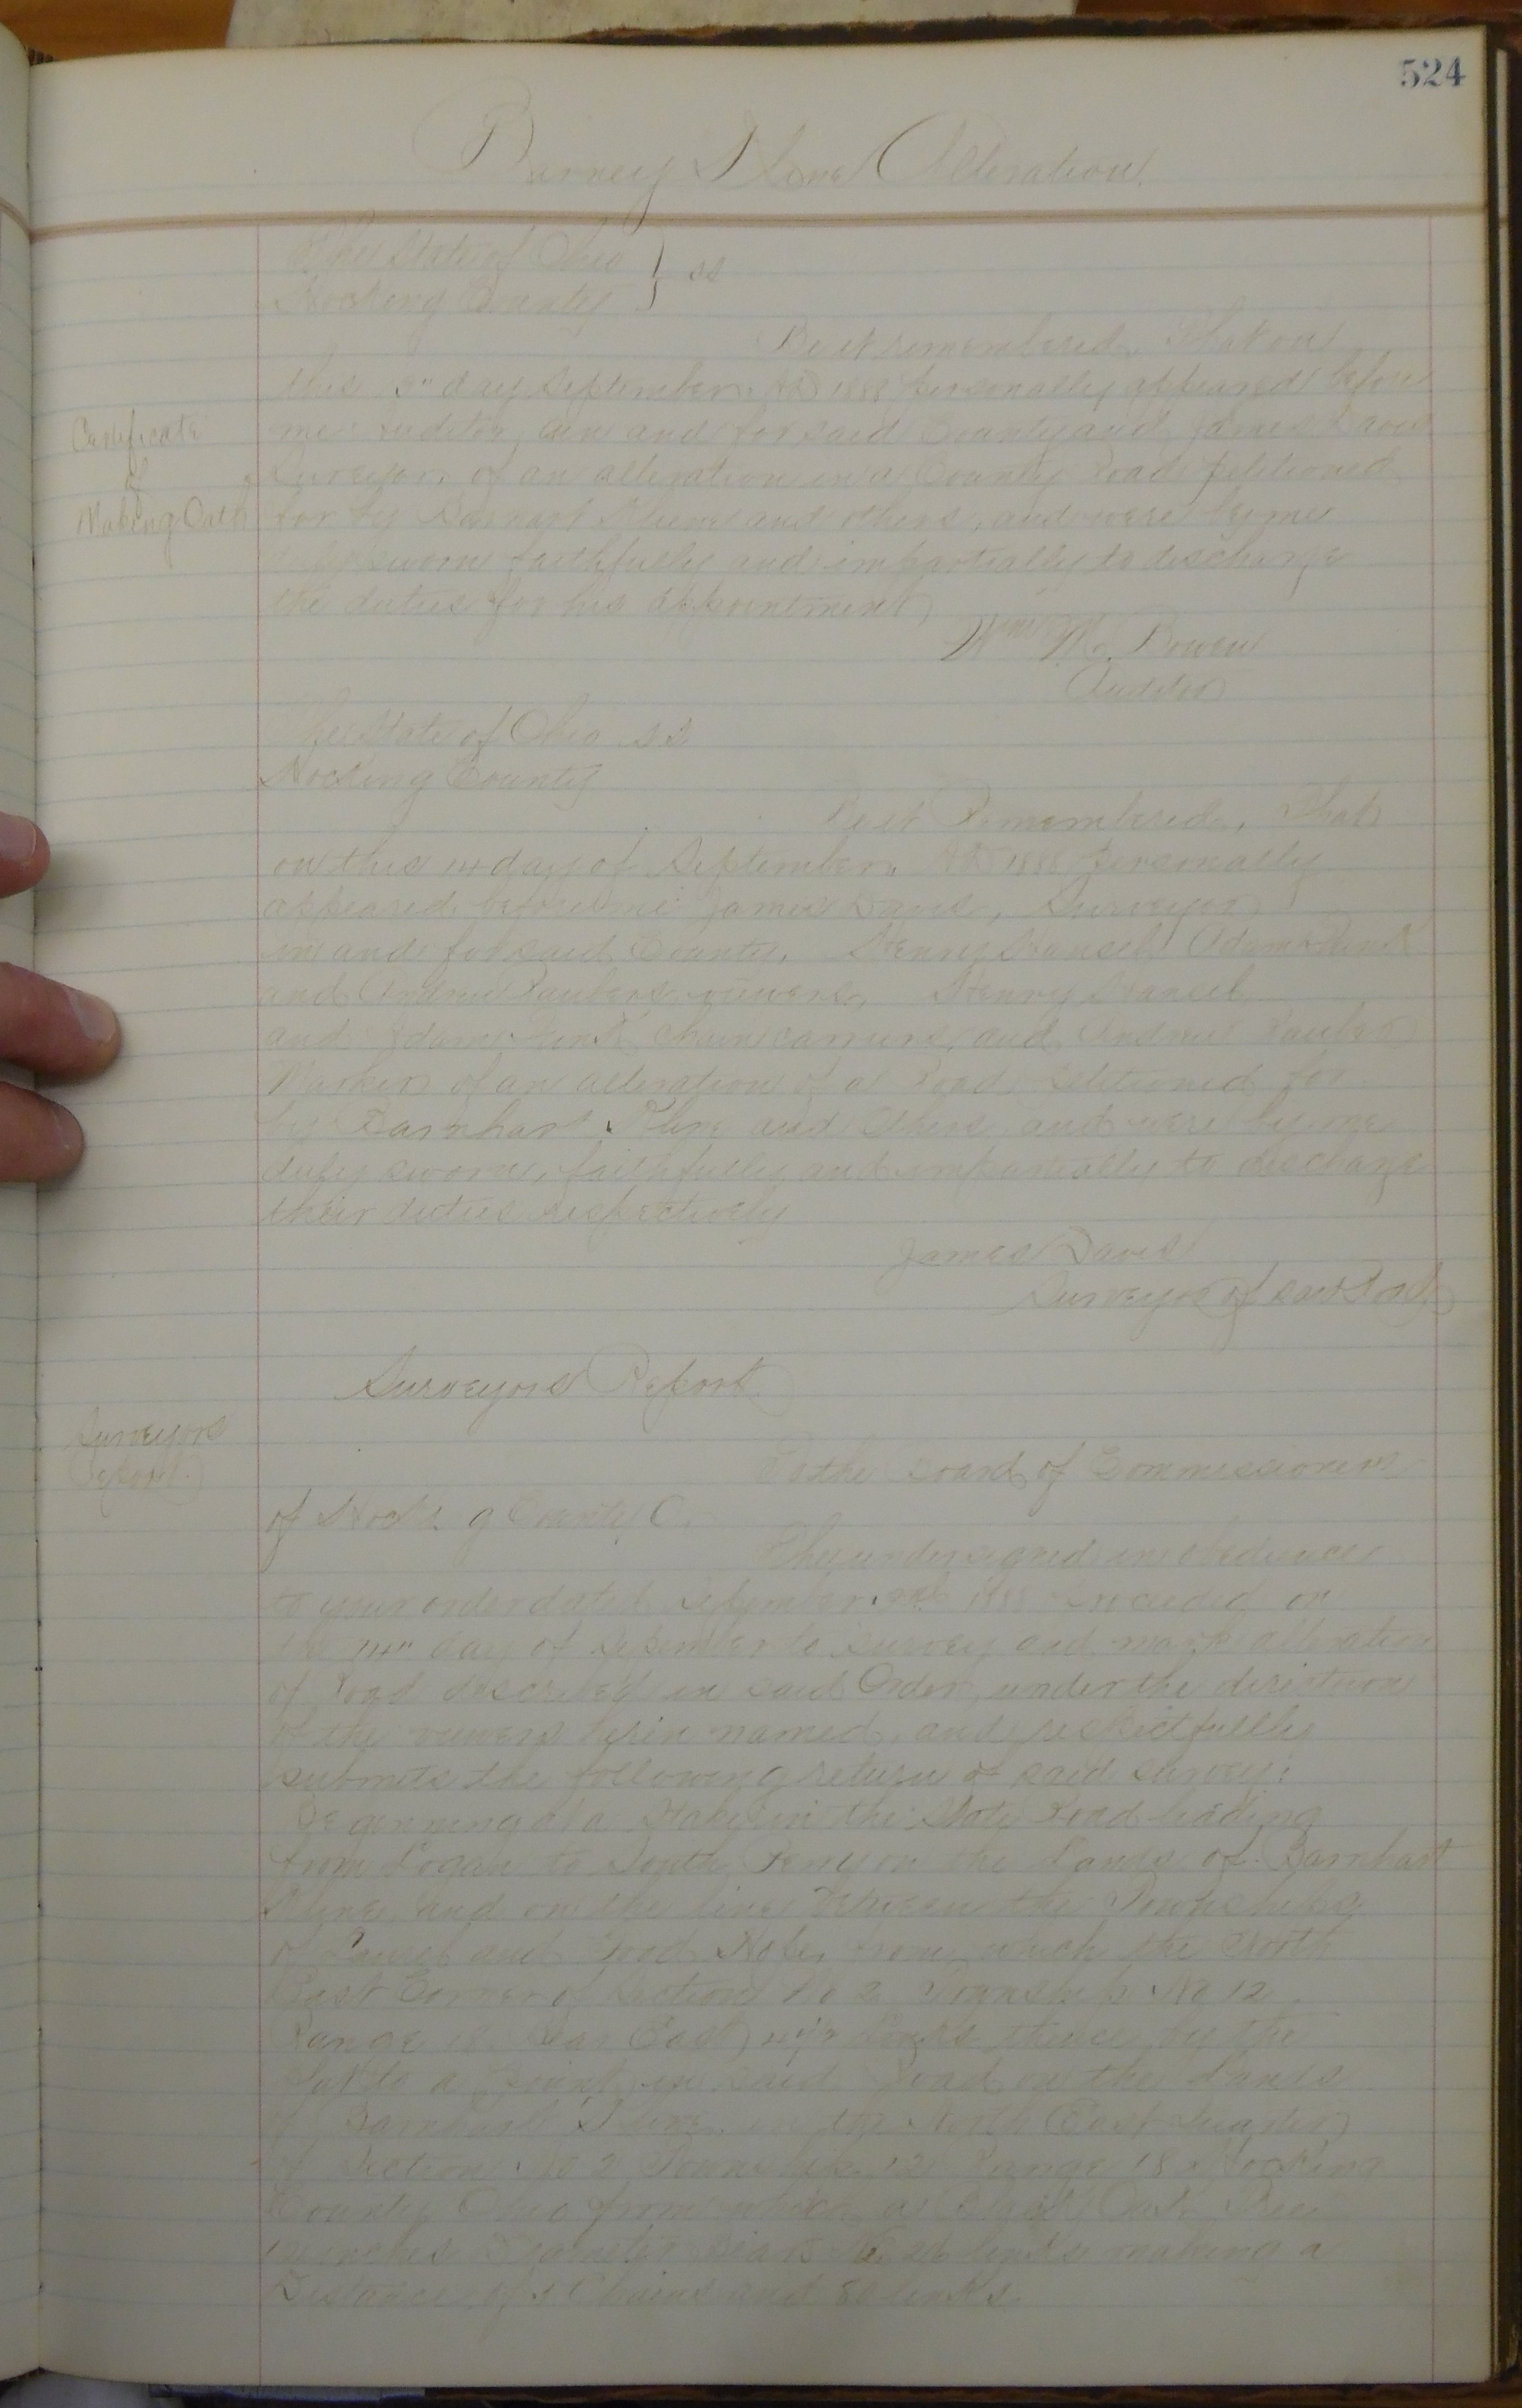 524
Barney Kline Alteration.
The State of Ohio } ss
Hocking County
Be it remembered, That on
this day September, AD 1888 personally appeared before
Certificate
me Auditor, in and for said County and, James Davis
of
Surveyor, of an alteration in a County Road petitioned
Making Oath
for by Barnart Kline and others, and were by me
duly sworn faithfully and impartially to discharge
the duties for his appointment,
Wm M. Bowen
Auditor
The State of Ohio ss
Hocking County
Be it Remembered, That
on this 14 day of September, AD 1888 personally
appeared before me James Davis, Surveyor
in and for said County, Henry Hansel Adam Funk
and Andrew Rauber viewers, Henry Hansel
and Adam Funk chain carriers, and Andrew Rauber
Marker of an alteration of a Road petitioned for
by Barnhart Kline and Others and were by me
duly sworn, faithfully and impartially to discharge
their duties respectively
James Davis
Surveyor of said Road
Surveyors Report
Surveyors
Report
To the Board of Commissioners
of County O.
The undersigned in obedience
to your order dated September 1888 on
the 14" day of September to survey and mark alteration
of road described in said Order, under the direction
of the viewers herin named, and respectfully
submits the following return of said survey:
Beginning at a Stake in the State Road leading
from Logan to South Perry on the Lands of Barnhart
Kline, and on the line between the Townships
of Laurel and Good Hope, from which the North
East Corner of Section No 2 Township No 12
Range 18 East links thence by the
to a Point in said Road on the Lands
of Barnhart Kline in the North East Quarter
of Section No 2 Township 12 Range 18 Hocking
County Ohio from which a Black Oak Tree
inches Diameter bears links making a
Distance of Chains and 80 links.